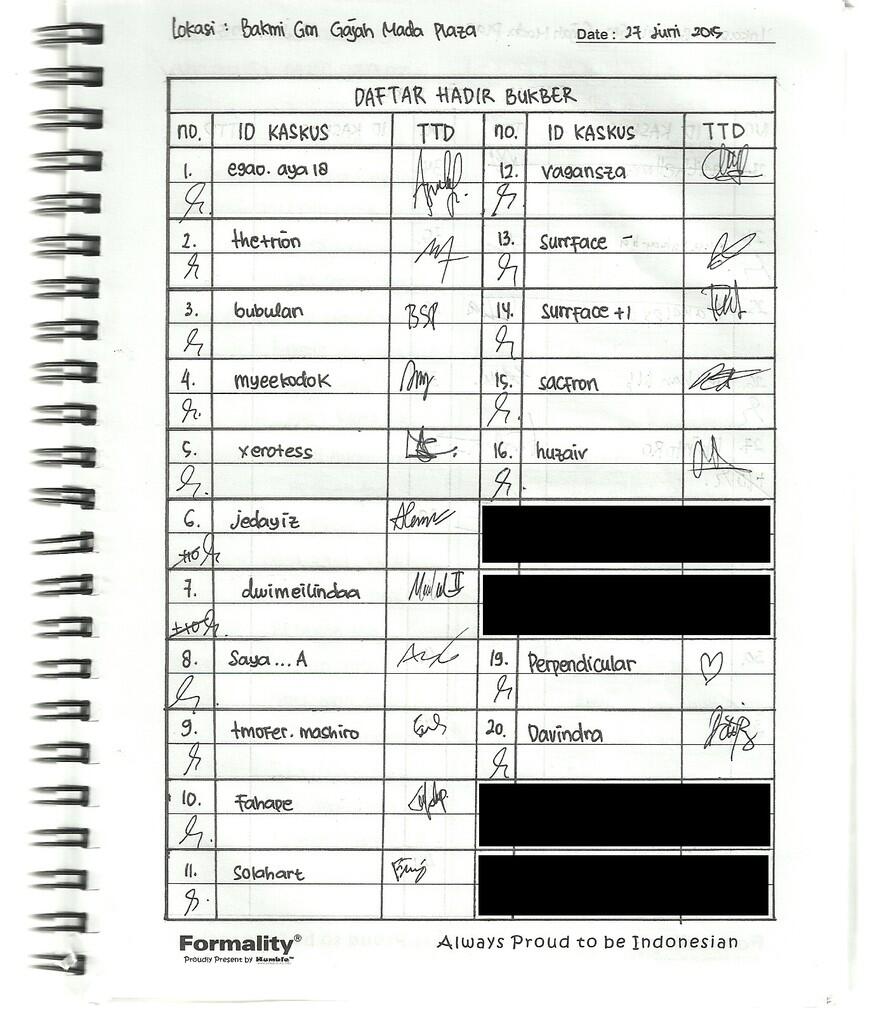 Lokasi : Bakmi Gm Gajah Mada Plaza
Date : 27 Juni 2015
DAFTAR HADIR BUKBER
no. ID KASKUS TTD no. ID KASKUS TTD
1. egao.aya18 12. vagansza
2. thetrion 13. surrface -
3. bubulan BSP 14. surrface +1
4. myeekodok 15. sacfron
5. xerotess 16. huzaiv
6. jedayiz
7. dwimeilindaa
8. Saya...A 19. Perpendicular
9. tmorer.mashiro 20. Davindra
10. Fahape
11. solahart
Formality®
Proudly Present by Humble™
Always Proud to be Indonesian